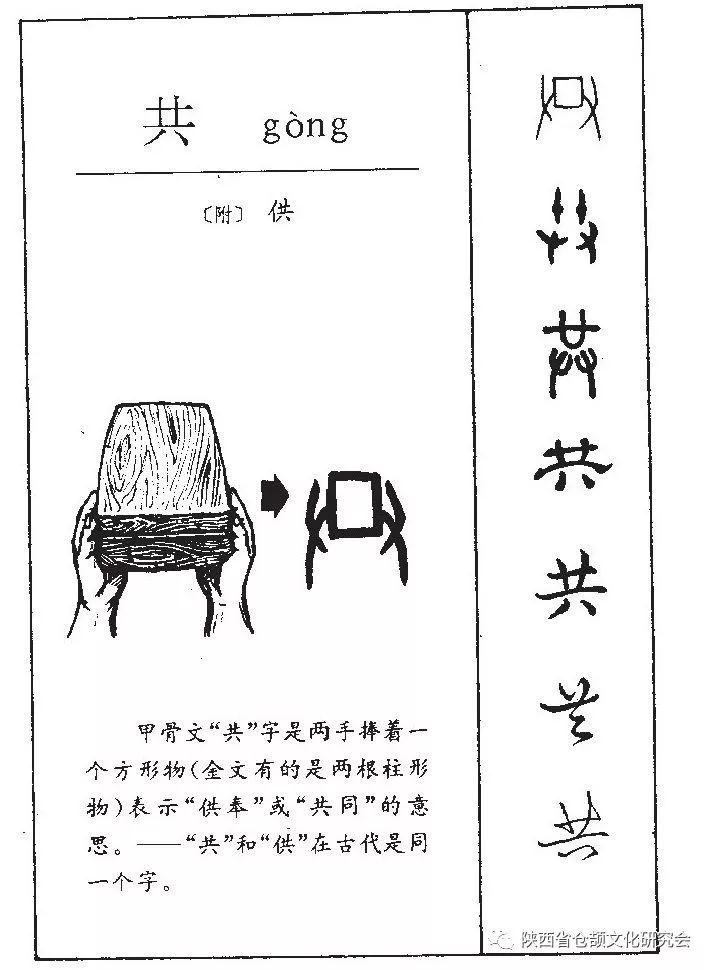 共 gòng
〔附〕 供
甲骨文“共”字是两手捧着一
个方形物(金文有的是两根柱形
物)表示“供奉”或“共同”的意
思。——“共”和“供”在古代是同
一个字。
共
共
共
陕西省仓颉文化研究会